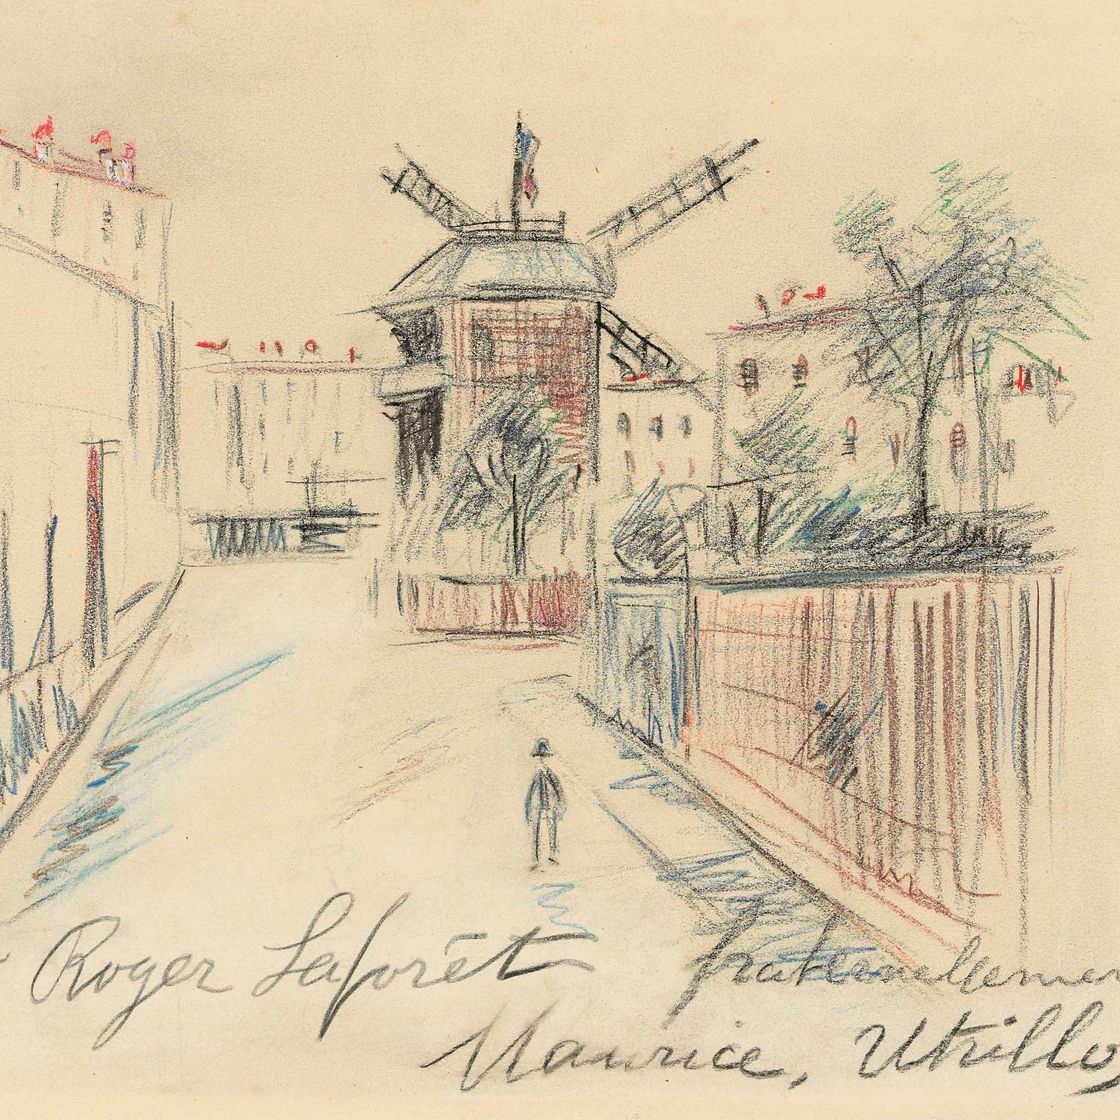 Roger Laforêt fraternellement
Maurice, Utrillo,